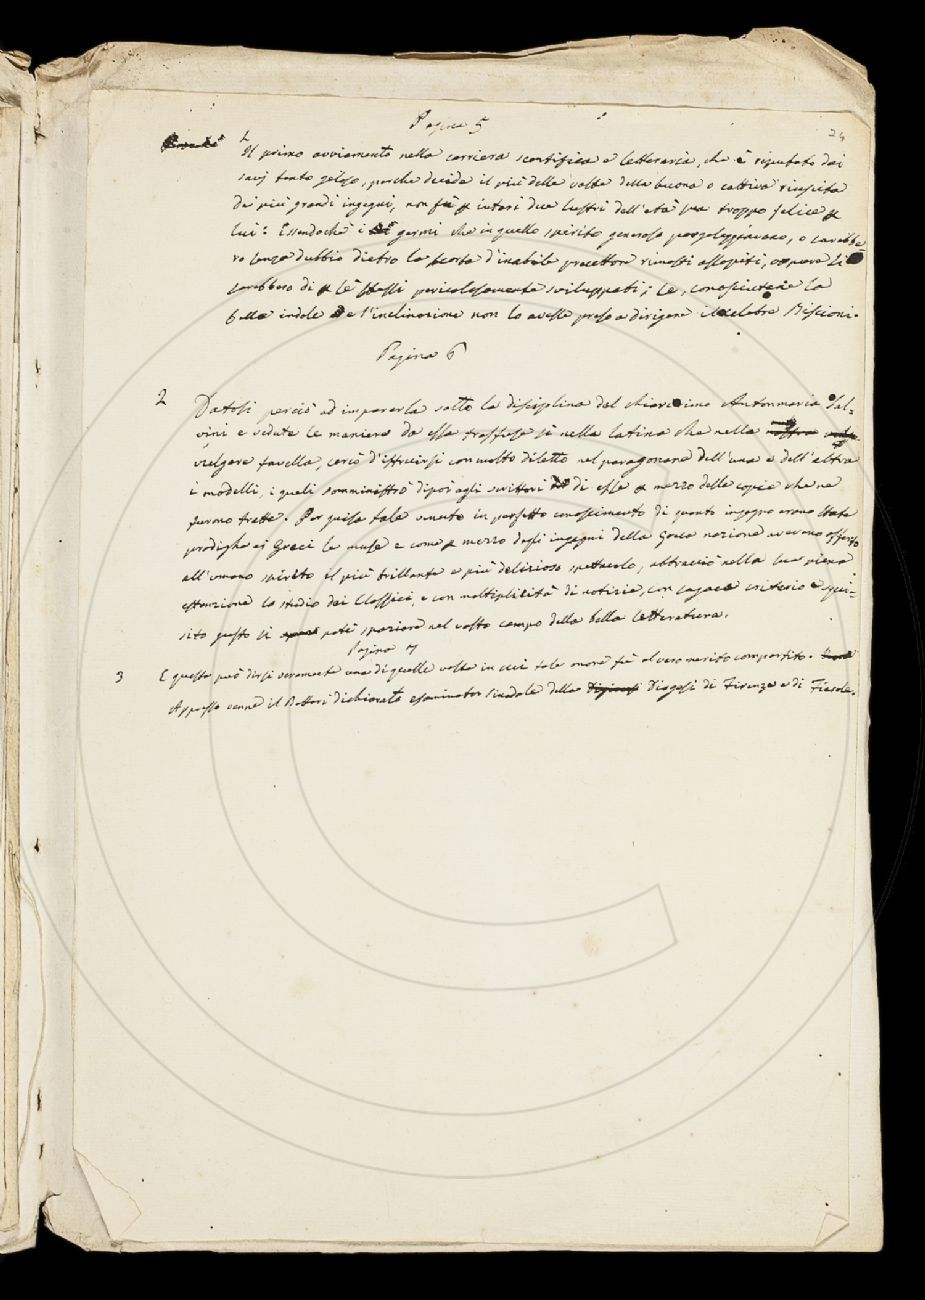 Pagina 5
24
1
Il primo avviamento nella carriera scentifica e letteraria, che è riputato dai
savj tanto geloso, perche decide il più delle volte della buona o cattiva riuscita
de più grandi ingegni, non fù p interi due lustri dell'età sua troppo felice p
lui: Essendochè i germi che in quello spirito generoso pargoleggiavano, o sarebbe-
ro senza dubbio dietro la scorta d'inabile precettore rimasti assopiti, oppure si
sarebbero di p se stessi pericolosamente sviluppati; se, conosciutane la
bella indole e l'inclinazione non lo avesse preso a dirigere il celebre Biscioni.
Pagina 6
2
Datosi perciò ad impararla sotto la disciplina del chiarissimo Antonmaria Sal-
vini e vedute le maniere da essa trasfuse sì nella latina che nella nostra
vulgare favella, cercò d'istruirsi con molto diletto nel paragonare dell'una e dell'altra
i modelli, i quali somministrò dipoi agli scrittori di esse p mezzo delle copie che ne
furono tratte. Per guisa tale venuto in perfetto conoscimento di quanto ingegno erano state
prodighe ai Greci le muse e come p mezzo degli ingegni della Greca nazione avevano offerto
all'umano spirito il più brillante e più delizioso spettacolo, abbracciò nella sua piena
estenzione lo studio dei Classici, e con moltiplicità di notizie, con sagace criterio e squi-
sito gusto si potè spaziare nel vasto campo della bella letteratura.
Pagina 7
3
E questa può dirsi veramente una di quelle volte in cui tale onore fù al vero merito compartito.
Appresso venne il Bottari dichiarato esaminator sinodale della Diogesi di Firenze e di Fiesole.